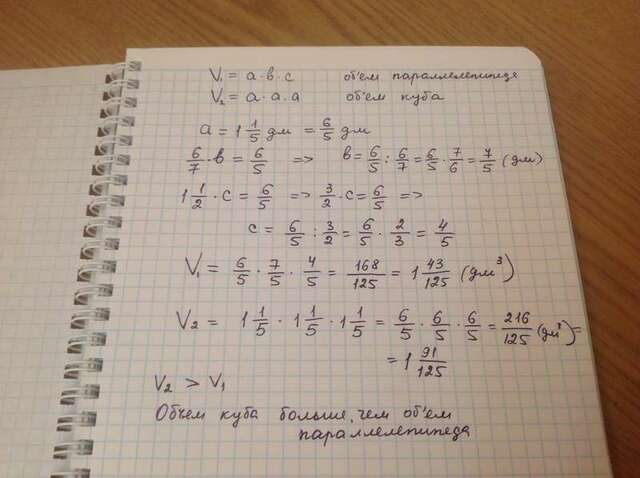 V₁ = a·в·c объем параллелепипеда
V₂ = a·a·a объем куба
a = 1 1/5 дм = 6/5 дм
6/7 · в = 6/5 => в = 6/5 : 6/7 = 6/5 · 7/6 = 7/5 (дм)
1 1/2 · c = 6/5 => 3/2 · c = 6/5 =>
c = 6/5 : 3/2 = 6/5 · 2/3 = 4/5
V₁ = 6/5 · 7/5 · 4/5 = 168/125 = 1 43/125 (дм³)
V₂ = 1 1/5 · 1 1/5 · 1 1/5 = 6/5 · 6/5 · 6/5 = 216/125 (дм³) =
= 1 91/125
V₂ > V₁
Объем куба больше, чем объем
параллелепипеда